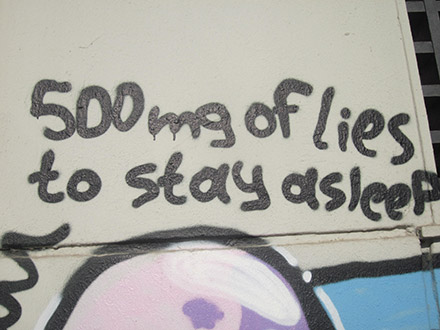 500mg of lies
to stay asleep